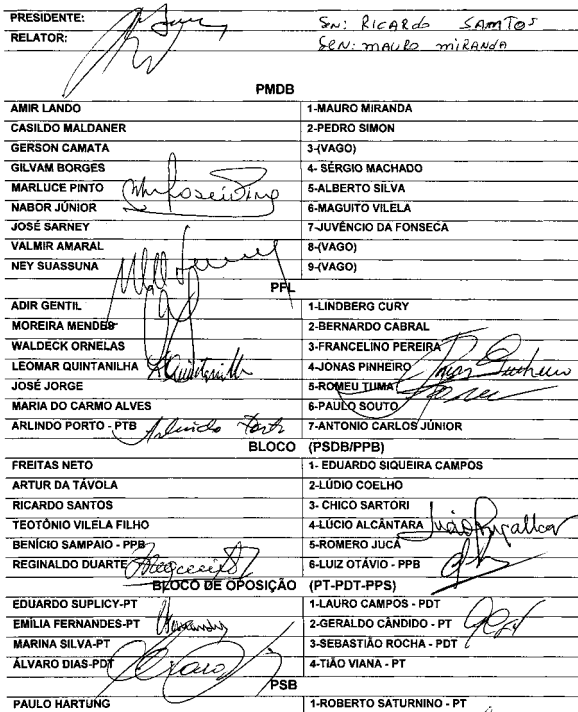 PRESIDENTE: SEN: RICARDO SANTOS
RELATOR: SEN: MAURO MIRANDA
PMDB
AMIR LANDO 1-MAURO MIRANDA
CASILDO MALDANER 2-PEDRO SIMON
GERSON CAMATA 3-(VAGO)
GILVAM BORGES 4- SÉRGIO MACHADO
MARLUCE PINTO 5-ALBERTO SILVA
NABOR JÚNIOR 6-MAGUITO VILELA
JOSÉ SARNEY 7-JUVÊNCIO DA FONSECA
VALMIR AMARAL 8-(VAGO)
NEY SUASSUNA 9-(VAGO)
PFL
ADIR GENTIL 1-LINDBERG CURY
MOREIRA MENDES 2-BERNARDO CABRAL
WALDECK ORNELAS 3-FRANCELINO PEREIRA
LEOMAR QUINTANILHA 4-JONAS PINHEIRO
JOSÉ JORGE 5-ROMEU TUMA
MARIA DO CARMO ALVES 6-PAULO SOUTO
ARLINDO PORTO - PTB Arlindo Porto 7-ANTONIO CARLOS JÚNIOR
BLOCO (PSDB/PPB)
FREITAS NETO 1- EDUARDO SIQUEIRA CAMPOS
ARTUR DA TÁVOLA 2-LÚDIO COELHO
RICARDO SANTOS 3- CHICO SARTORI
TEOTÔNIO VILELA FILHO 4-LÚCIO ALCÂNTARA
BENÍCIO SAMPAIO - PPB 5-ROMERO JUCÁ
REGINALDO DUARTE 6-LUIZ OTÁVIO - PPB
BLOCO DE OPOSIÇÃO (PT-PDT-PPS)
EDUARDO SUPLICY-PT 1-LAURO CAMPOS - PDT
EMÍLIA FERNANDES-PT 2-GERALDO CÂNDIDO - PT
MARINA SILVA-PT 3-SEBASTIÃO ROCHA - PDT
ÁLVARO DIAS-PDT 4-TIÃO VIANA - PT
PSB
PAULO HARTUNG 1-ROBERTO SATURNINO - PT